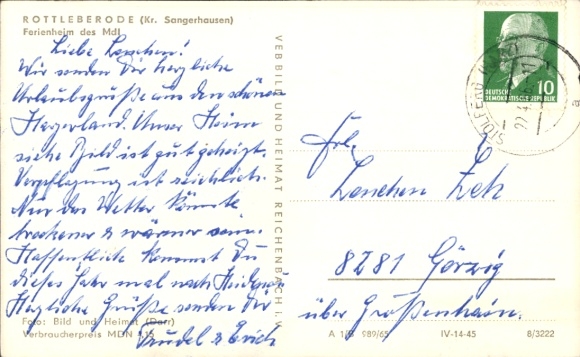 ROTTLEBERODE (Kr. Sangerhausen)
Ferienheim des MdI
Liebe Lenchen!
Wir senden Dir herzliche
Urlaubsgrüße aus dem schönen
Harzerland. Unser Heim
siehe Bild ist gut geheizt.
Verpflegung ist reichlich.
Nur das Wetter könnte
trockener & wärmer sein.
Hoffentlich kommst Du
dieses Jahr mal nach
Herzliche Grüße senden Dir
Trudel & Erich
Foto: Bild und Heimat (Darr)
Verbraucherpreis MDN
VEB BILD UND HEIMAT REICHENBACH i. V.
DEUTSCHE
DEMOKRATISCHE REPUBLIK
10
STOLBERG
Frl.
Lenchen Zeh
8281 Görzig
über Großenhain.
A 1/B 989/65 IV-14-45 8/3222